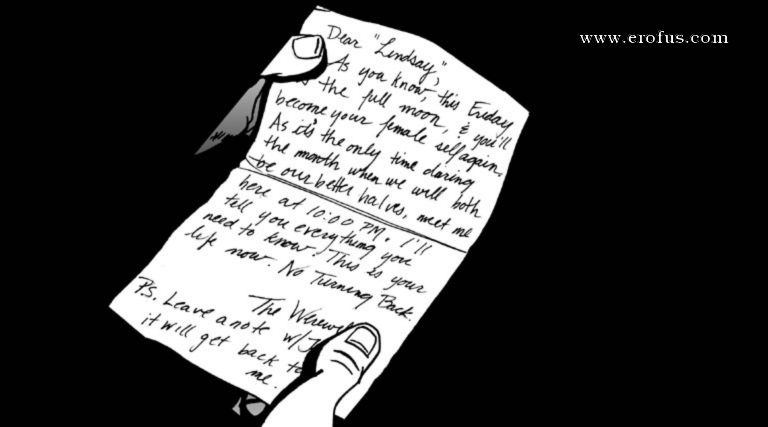 www.erofus.com
Dear "Lindsay,"
As you know, this Friday
is the full moon, & you'll
become your female self again.
As it's the only time during
the month when we will both
be our better halves, meet me
here at 10:00 PM. I'll
tell you everything you
need to know. This is your
life now. No Turning Back.
The
P.S. Leave a note w/
it will get back to
me.